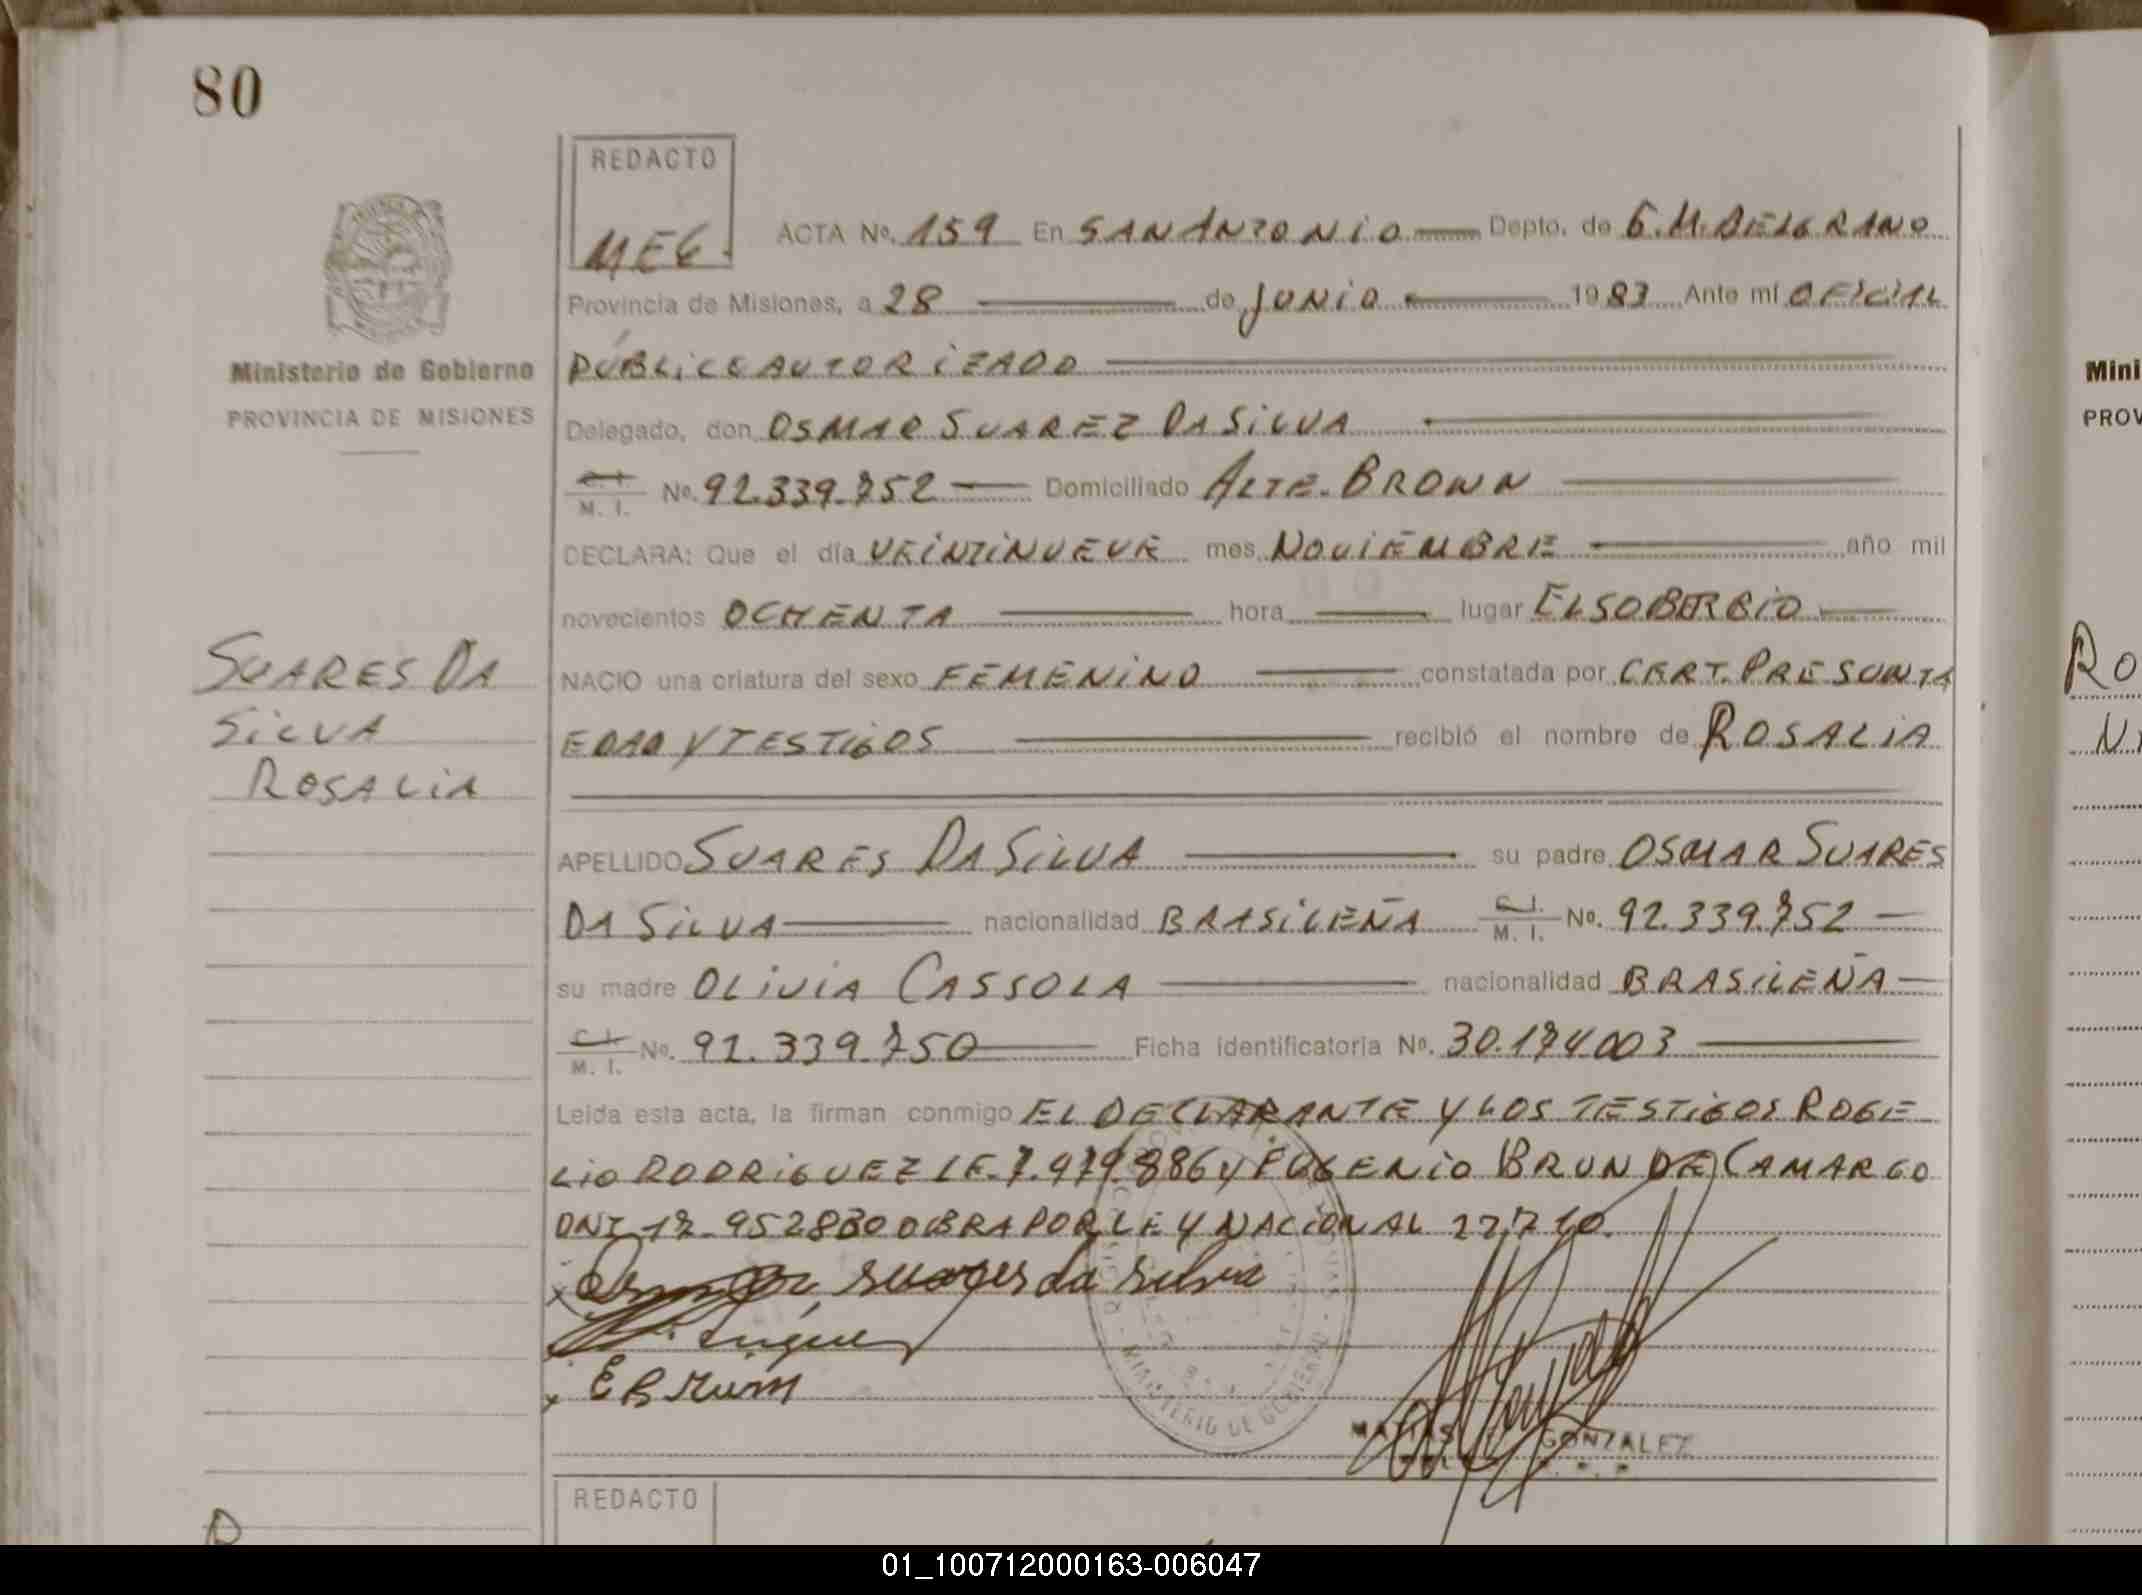 80
REDACTO
MEG.
ACTA No. 159 En SAN ANTONIO Depto. de G.M.BELGRANO
Provincia de Misiones, a 28 de JUNIO 1983 Ante mí OFICIAL
PÚBLICO AUTORIZADO
Ministerio de Gobierno
PROVINCIA DE MISIONES
Delegado, don OSMAR SUAREZ DA SILVA
C. I.
M. I. No. 92.339.752 Domiciliado ALTE. BROWN
DECLARA: Que el día VEINTINUEVE mes NOVIEMBRE año mil
novecientos OCHENTA hora lugar EL SOBERBIO
SUARES DA
SILVA
ROSALIA
NACIO una criatura del sexo FEMENINO constatada por CERT. PRESUNTA
EDAD Y TESTIGOS recibió el nombre de ROSALIA
APELLIDO SUARES DA SILVA su padre OSMAR SUARES
DA SILVA nacionalidad BRASILEÑA C. I.
M. I. No. 92.339.752
su madre OLIVIA CASSOLA nacionalidad BRASILEÑA
C. I.
M. I. No. 92.339.750 Ficha identificatoria No. 30.174003
Leída esta acta, la firman conmigo EL DECLARANTE Y LOS TESTIGOS ROGE
LIO RODRIGUEZ LE. 7.979.886 Y EUGENIO BRUN DE CAMARGO
DNI 17.952880 OBRA POR LEY NACIONAL 22.710.
Osmar suares da silva
E Brum
MINISTERIO DE GOBIERNO
MATIAS GONZALEZ
REDACTO
Mini
PROV
RO
01_100712000163-006047